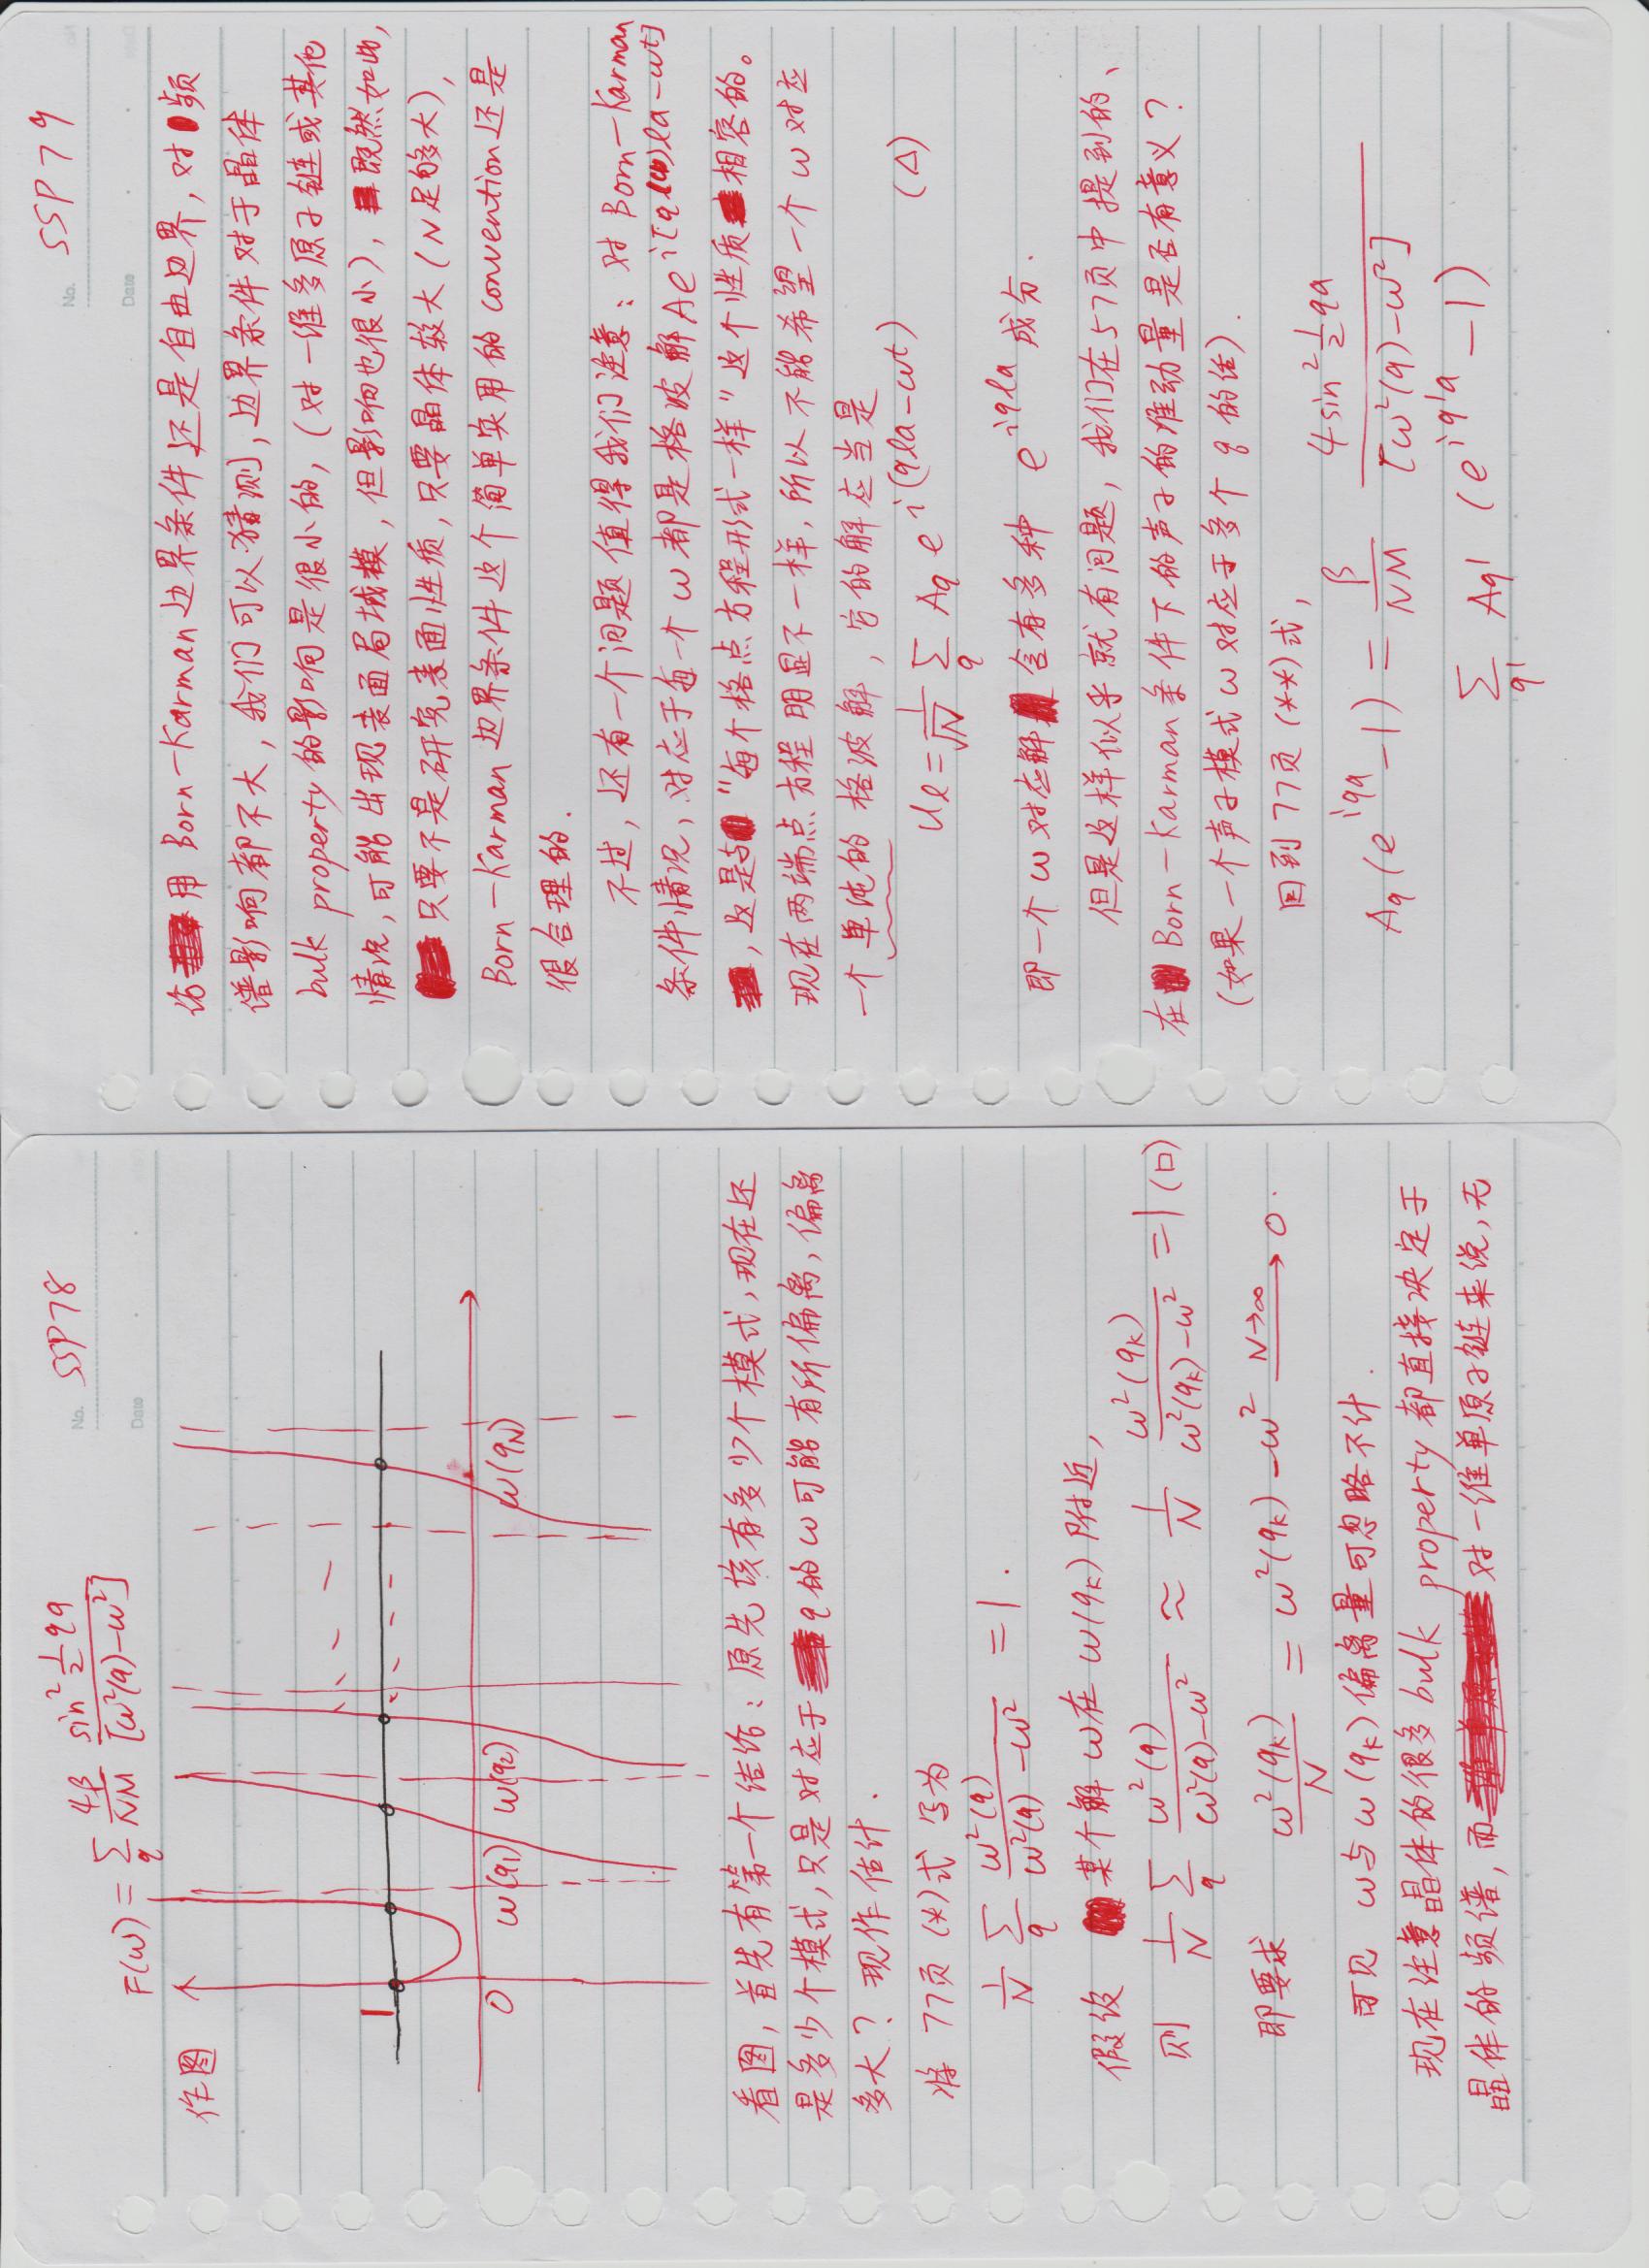 SSP78
F(ω) = Σ_q 4β/NM sin² ½qa / [ω²(q)-ω²]
作图
1
0 ω(q₁) ω(q₂) ω(q_N)
看图, 首先有第一个结论: 原先该有多少个模式, 现在还
是多少个模式, 只是对应于 q的ω可能有所偏离, 偏离
多大? 现作估计.
将 77页 (*)式 写为
1/N Σ_q ω²(q) / ω²(q)-ω² = 1.
假设 某个解 ω在 ω(q_k) 附近,
则 1/N Σ_q ω²(q) / ω²(q)-ω² ≈ 1/N ω²(q_k) / ω²(q_k)-ω² = 1 (□)
即要求 ω²(q_k)/N = ω²(q_k)-ω² —N→∞→ 0.
可见 ω与ω(q_k)偏离量可忽略不计.
现在注意晶体的很多 bulk property 都直接决定于
晶体的频谱, 而 对一维单原子链来说, 无
SSP79
论 用 Born-Karman 边界条件还是自由边界, 对 频
谱影响都不大, 我们可以猜测, 边界条件对于晶体
bulk property 的影响是很小的, (对一维多原子链或其他
情况, 可能出现表面局域模, 但影响也很小), 既然如此,
只要不是研究表面性质, 只要晶体较大 (N足够大),
Born-Karman 边界条件这个简单实用的 convention 还是
很合理的.
不过, 还有一个问题值得我们注意: 对 Born-Karman
条件情况, 对应于每一个 ω 都是格波解 Ae^{i[q(ω)la-ωt]}
, 这是与 "每个格点方程形式一样" 这个性质 相容的。
现在两端点方程明显不一样, 所以不能希望一个ω对应
一个单纯的格波解, 它的解应当是
u_l = 1/√N Σ_q A_q e^{i(qla-ωt)} (Δ)
即一个ω对应解 含有多种 e^{iqla} 成分.
但是这样似乎就有问题, 我们在57页中提到的、
在 Born-Karman 条件下的声子的准动量是否有意义?
(如果一个声子模式ω对应于多个 q 的话).
回到77页 (**)式,
A_q (e^{iqa} -1) = β/NM 4sin² ½qa / [ω²(q)-ω²]
Σ_q' A_q' (e^{iq'a} -1)